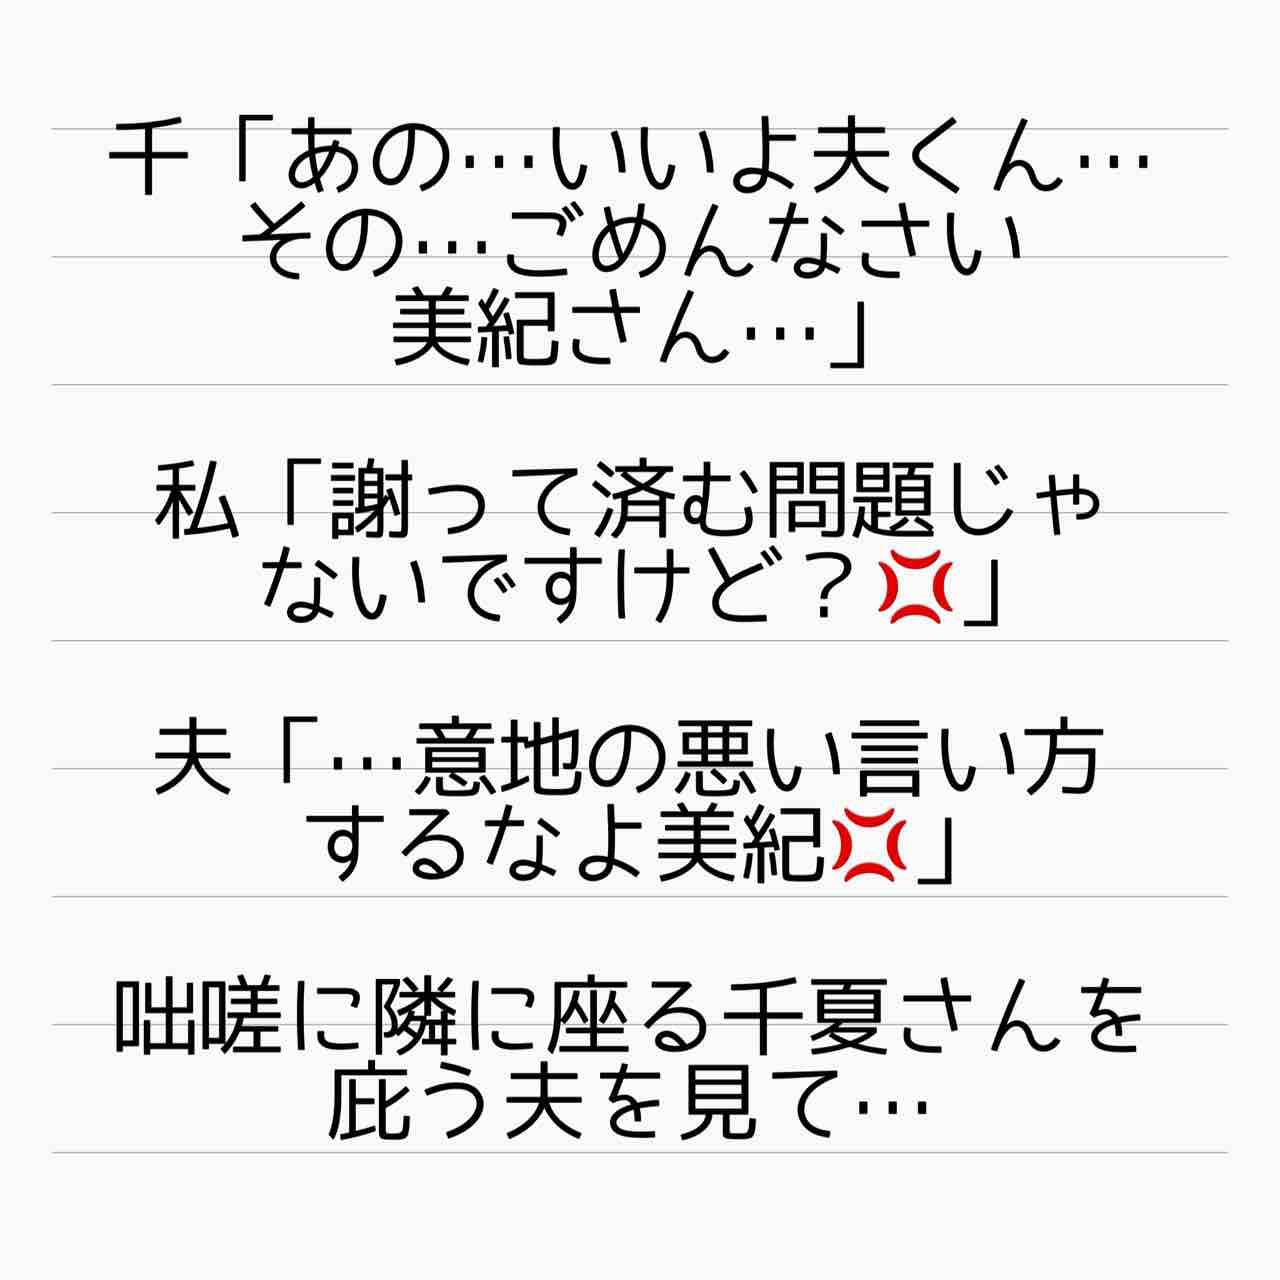 千「あの…いいよ夫くん…
その…ごめんなさい
美紀さん…」
私「謝って済む問題じゃ
ないですけど？💢」
夫「…意地の悪い言い方
するなよ美紀💢」
咄嗟に隣に座る千夏さんを
庇う夫を見て…